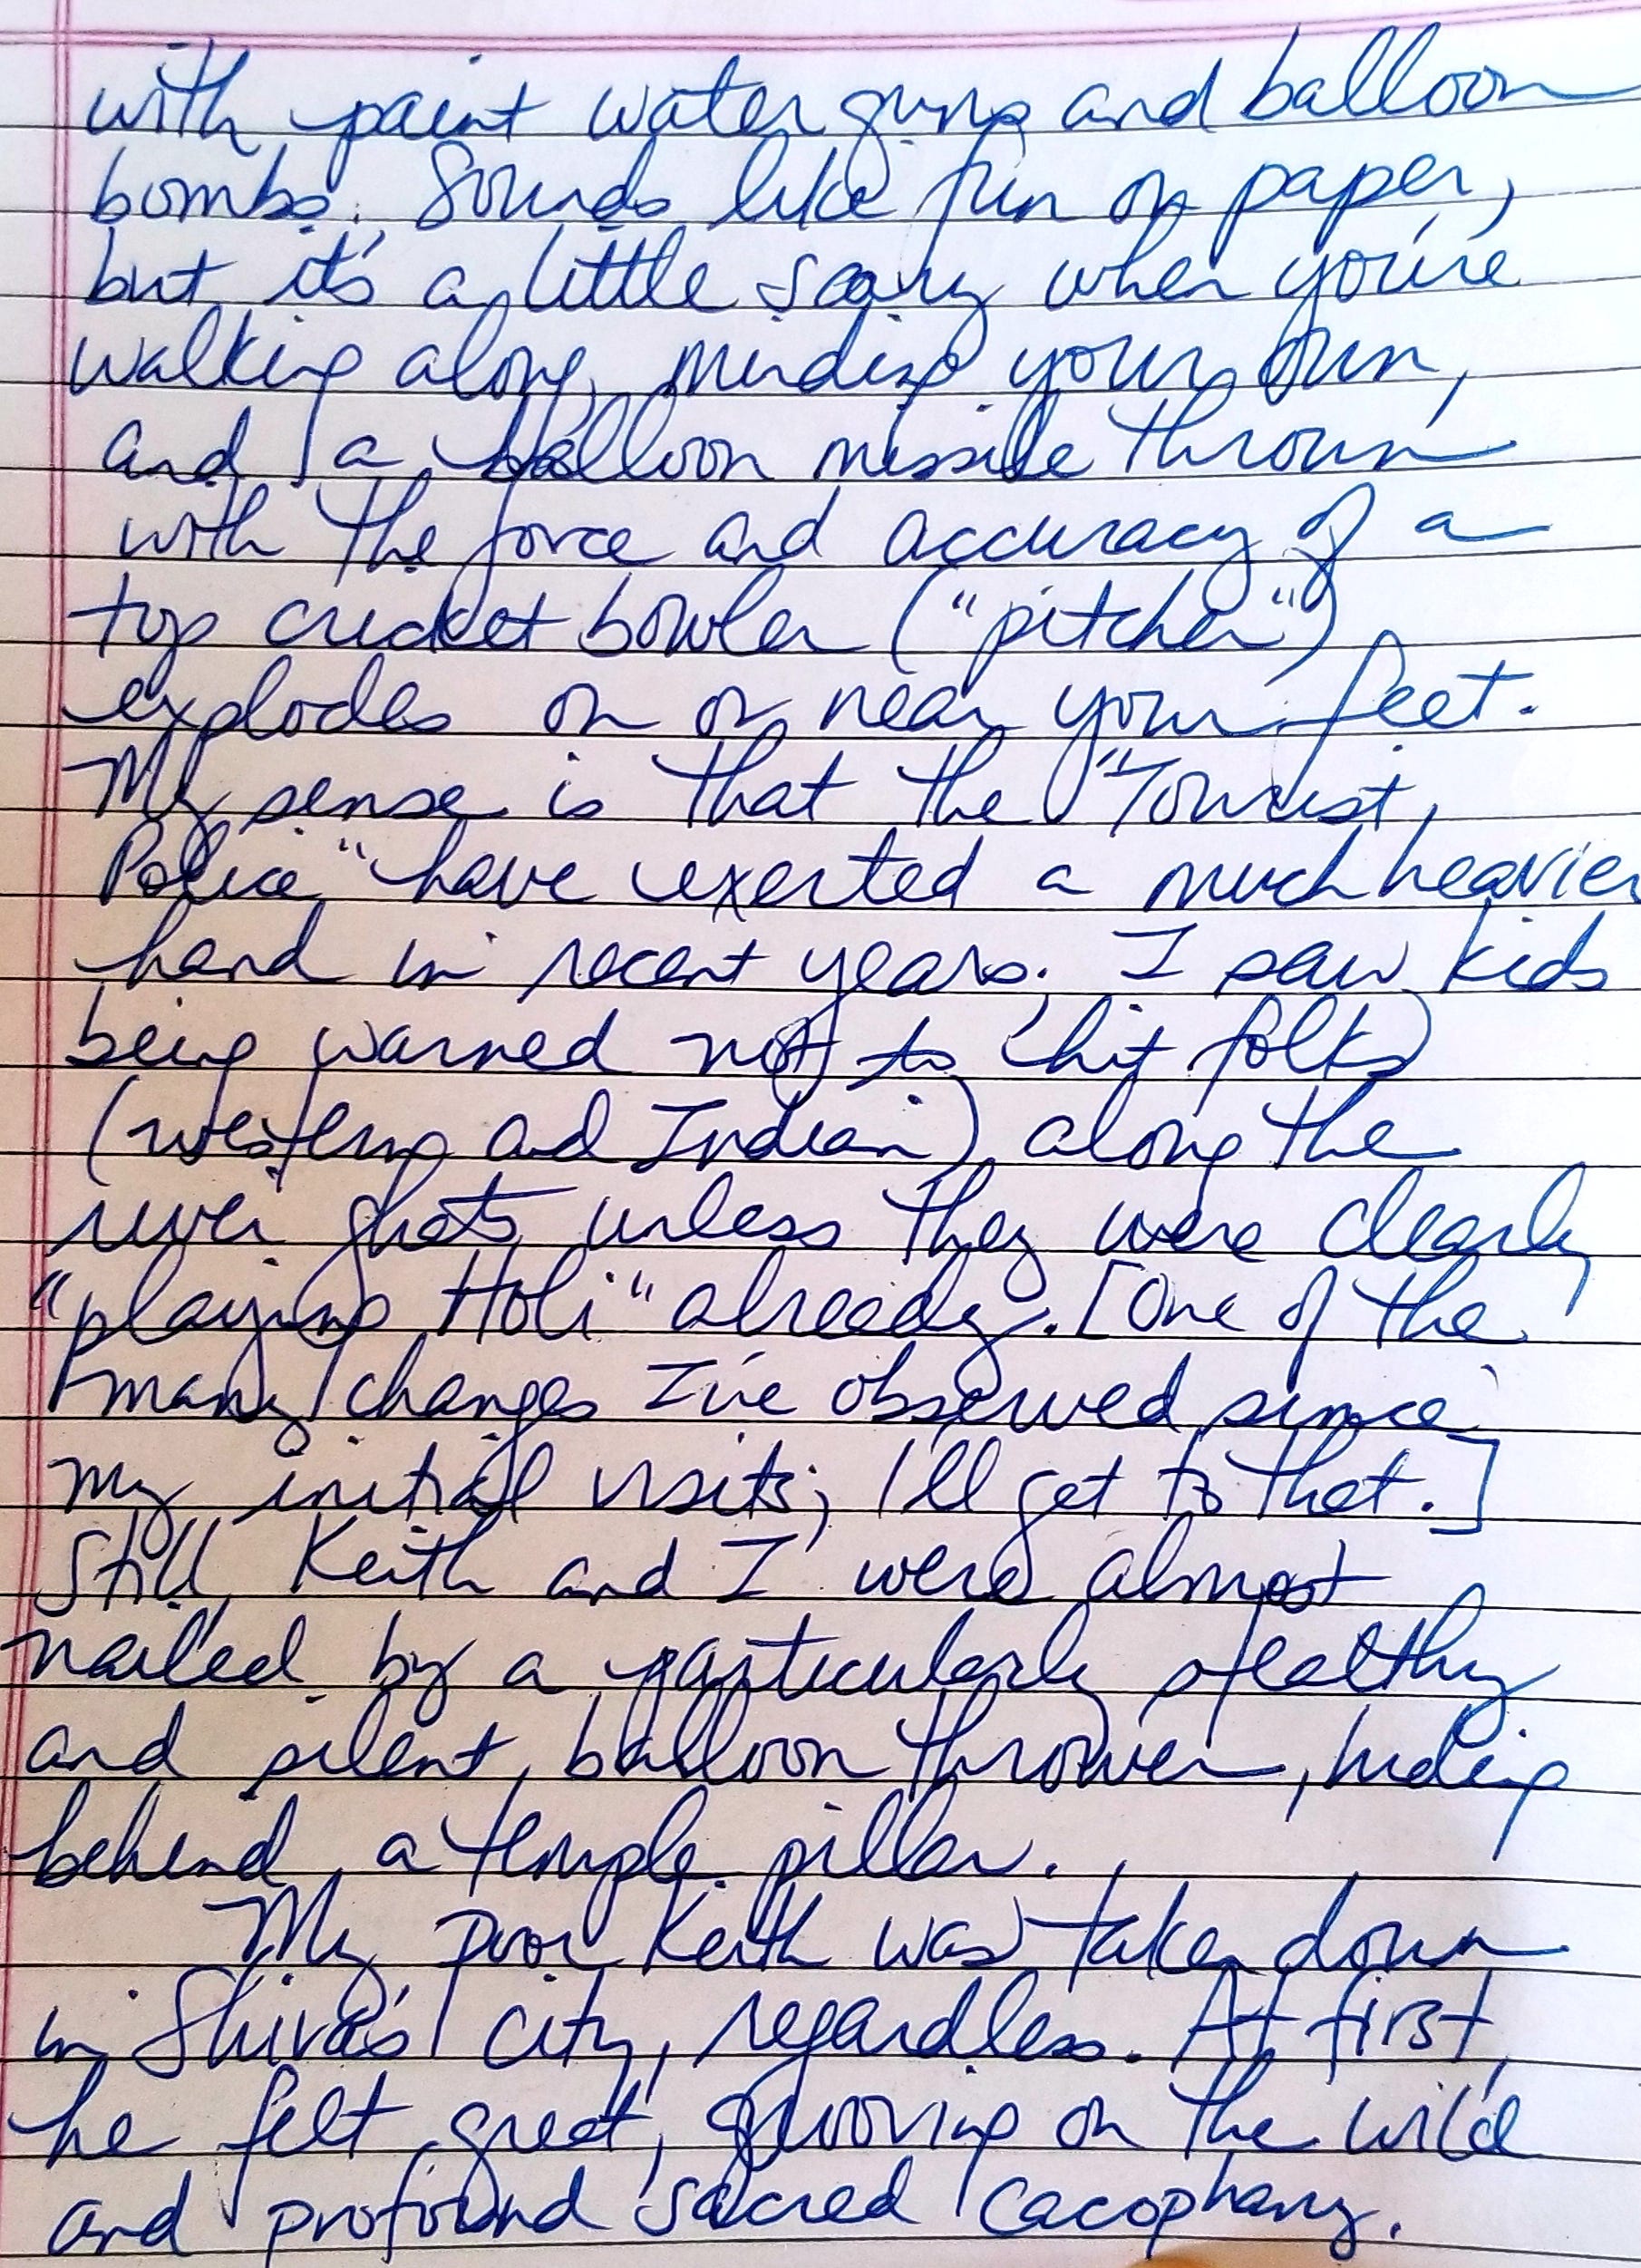 with paint water guns and balloon
bombs. Sounds like fun on paper,
but it's a little scary when you're
walking along, minding your own,
and a balloon missile thrown
with the force and accuracy of a
top cricket bowler ("pitcher")
explodes on or near your feet.
My sense is that the "Tourist
Police" have exerted a much heavier
hand in recent years. I saw kids
being warned not to hit folks
(western and Indian) along the
river ghats unless they were clearly
"playing Holi" already. [One of the
many changes I've observed since
my initial visits; I'll get to that.]
Still, Keith and I were almost
nailed by a particularly stealthy
and silent balloon thrower, hiding
behind a temple pillar.
My poor Keith was taken down
in Shiva's city, regardless. At first,
he felt great, grooving on the wild
and profound sacred cacophany.